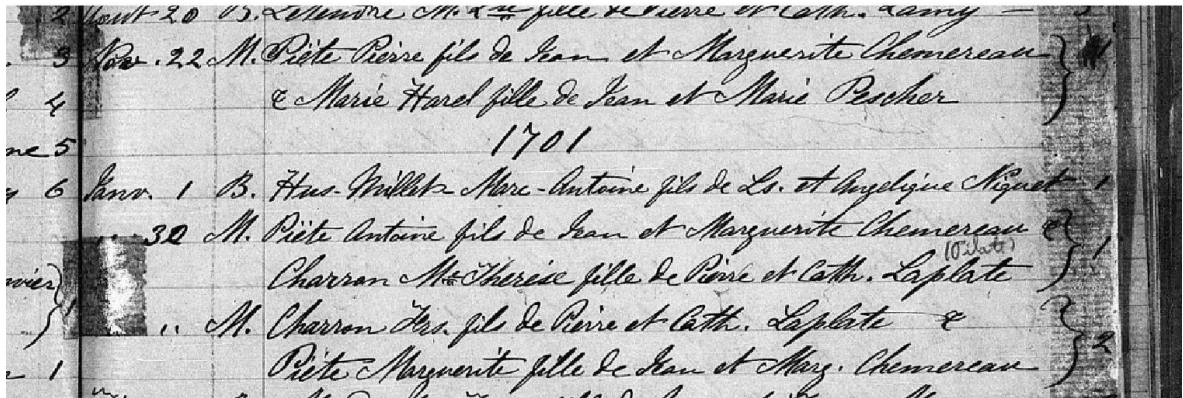 2 Aout 20 B. Letendre M. Lse fille de Pierre et Cath. Lamy
3 Nov. 22 M. Piëte Pierre fils de Jean et Marguerite Chemereau
4 & Marie Harel fille de Jean et Marie Pescher
ne 5 1701
6 Janv. 1 B. Hus-Millet Marc-Antoine fils de Ls. et Angelique Niquet 1
30 M. Piëte Antoine fils de Jean et Marguerite Chemereau &
(Pilate)
vier Charron M. Thérèse fille de Pierre et Cath. Laplate 1
" M. Charron Frs. fils de Pierre et Cath. Laplate &
1 Piëte Marguerite fille de Jean et Marg. Chemereau 2